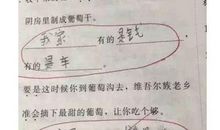 阴房里制成葡萄干。
我家 有的 是钱
有的 是车 。
要是这时候你到葡萄沟去，维吾尔族老乡
准会摘下最甜的葡萄，让你吃个够。